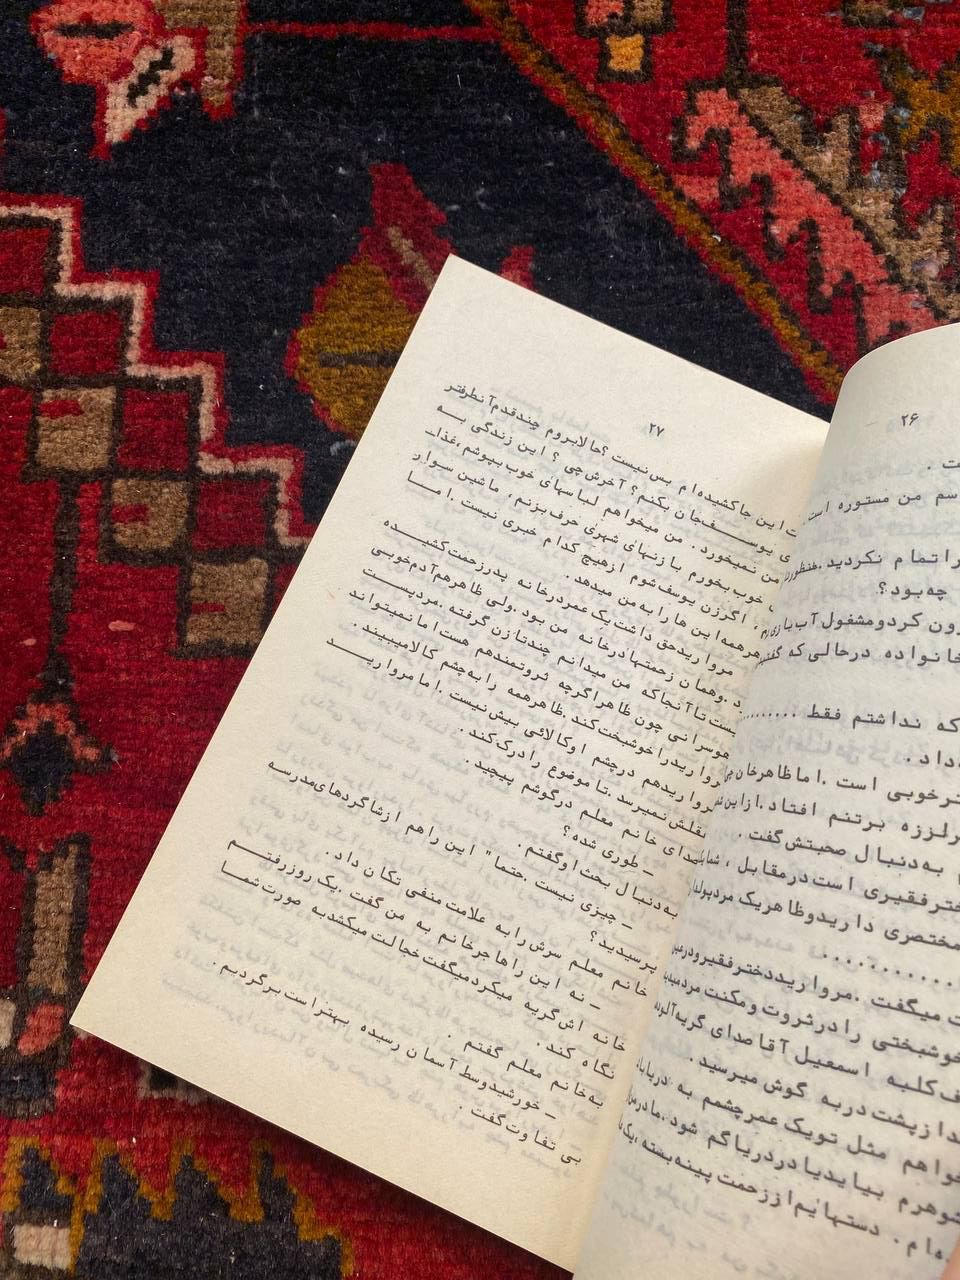 ۲۶
ت .
سم من مستوره است
را تمام نکردید . منظورتان
چه بود ؟
رون کرد و مشغول آب بازی
خانواده در حالی که
که نداشتم فقط ..........
داد .
خوبی است . اما ظاهر خان
لرزه برتنم افتاد . از این
به دنبال صحبتش گفت .
ختر فقیری است در مقابل ، شما
مختصری دارید و ظاهر یک مرد
...........
ت میگفت . مروارید دختر فقیر و در
خوشبختی را در ثروت و مکنت مرد
ف کلبه اسمعیل آقا صدای گریه آلود
دا ز پشت در به گوش میرسید .
خواهم مثل تو یک عمر چشمم به دریا
شوهرم بیاید یا در دریا گم شود .
م . دستهایم از زحمت پینه بسته ، یک
ه‌ام .
۲۷
ت این جا کشیده‌ام بس نیست ؟ حالا بروم چند قدم آنطرفتر
ی یوسف جان بکنم ؟ آخرش چی ؟ این زندگی به
من نمیخورد . من میخواهم لباسهای خوب بپوشم ، غذا
خوب بخورم با زنهای شهری حرف بزنم ، ماشین سوار
، اگر زن یوسف شوم از هیچ کدام خبری نیست . اما
هر همه این ها را به من میدهد .
مروارید حق داشت یک عمر در خانه پدر زحمت کشیده
د . وهمان زحمتها در خانه من بود . ولی ظاهر هم آدم خوبی
ست تا آنجا که من میدانم چند تا زن گرفته . مردیست
هوسرانی چون ظاهر اگرچه ثروتمند هم هست اما نمیتواند
مروارید را خوشبخت کند . ظاهر همه را به چشم کالا میبیند .
مروارید هم در چشم او کالائی بیش نیست . اما مروارید
عقلش نمیرسد . تا موضوع را درک کند .
صدای خانم معلم در گوشم پیچید .
ـ طوری شده ؟
به دنبال بحث او گفتم .
ـ چیزی نیست . حتما" این را هم از شاگردهای مدرسه
پرسیدید ؟
خانم معلم سرش را به علامت منفی تکان داد .
ـ نه این را هاجر خانم به من گفت . یک روز رفتم
خانه اش گریه میکرد میگفت خجالت میکشد به صورت شما
نگاه کند .
به خانم معلم گفتم .
ـ خورشید وسط آسمان رسیده بهتر است برگردیم .
بی تفاوت گفت .